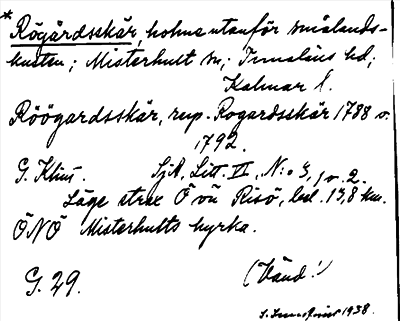 * Rögårdsskär, holme utanför smålands-
kusten; Misterhult sn; Tunaläns hd;
Kalmar l.
Röögardsskär, resp. Rogardsskär 1788 o.
1792.
G. Klint. SjA, Litt. VI, N:o 3, 1 o. 2.
Läge strax Ö om Risö, bel. 13,8 km.
ÖNÖ Misterhults kyrka.
G. 29. (Vänd!)
1938.